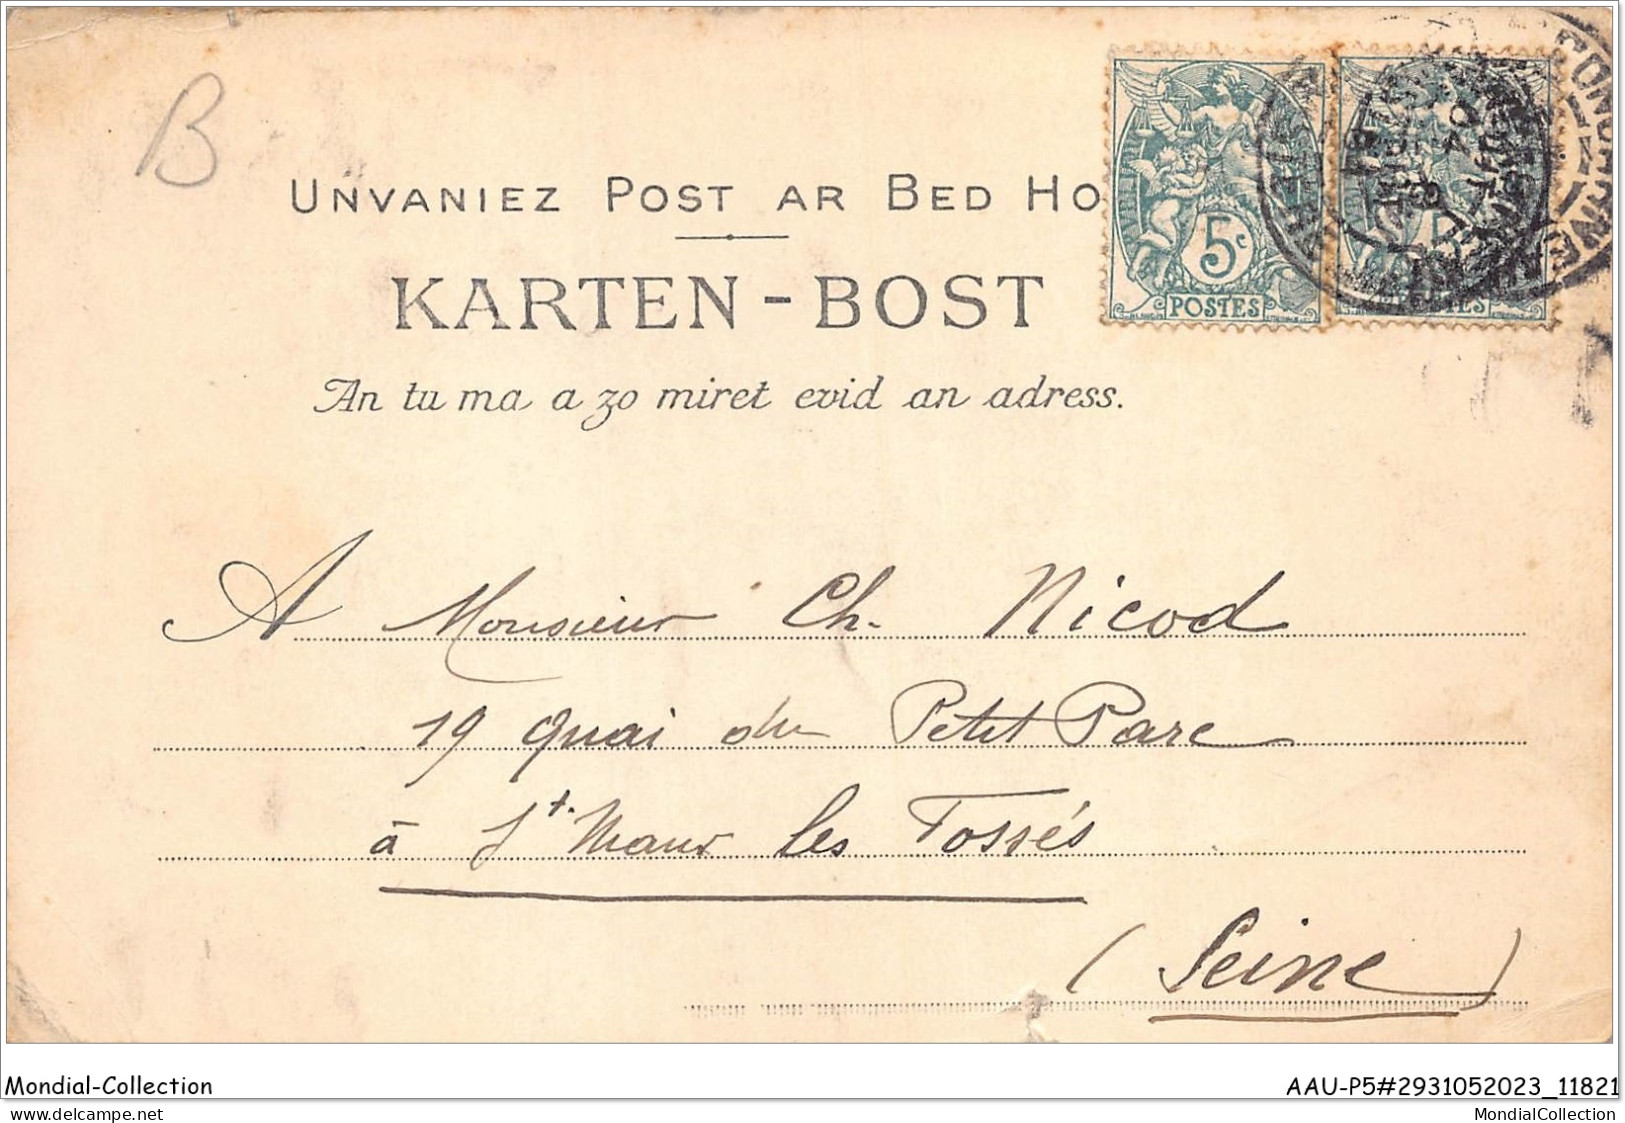 B
UNVANIEZ POST AR BED HO
KARTEN-BOST
An tu ma a zo miret evid an adress.
5c
POSTES
A Monsieur Ch. Nicod
19 Quai du Petit Parc
à St. Maur les Fossés
(Seine)
Mondial-Collection
AAU-P5#2931052023_11821
delcampe.net
MondialCollection